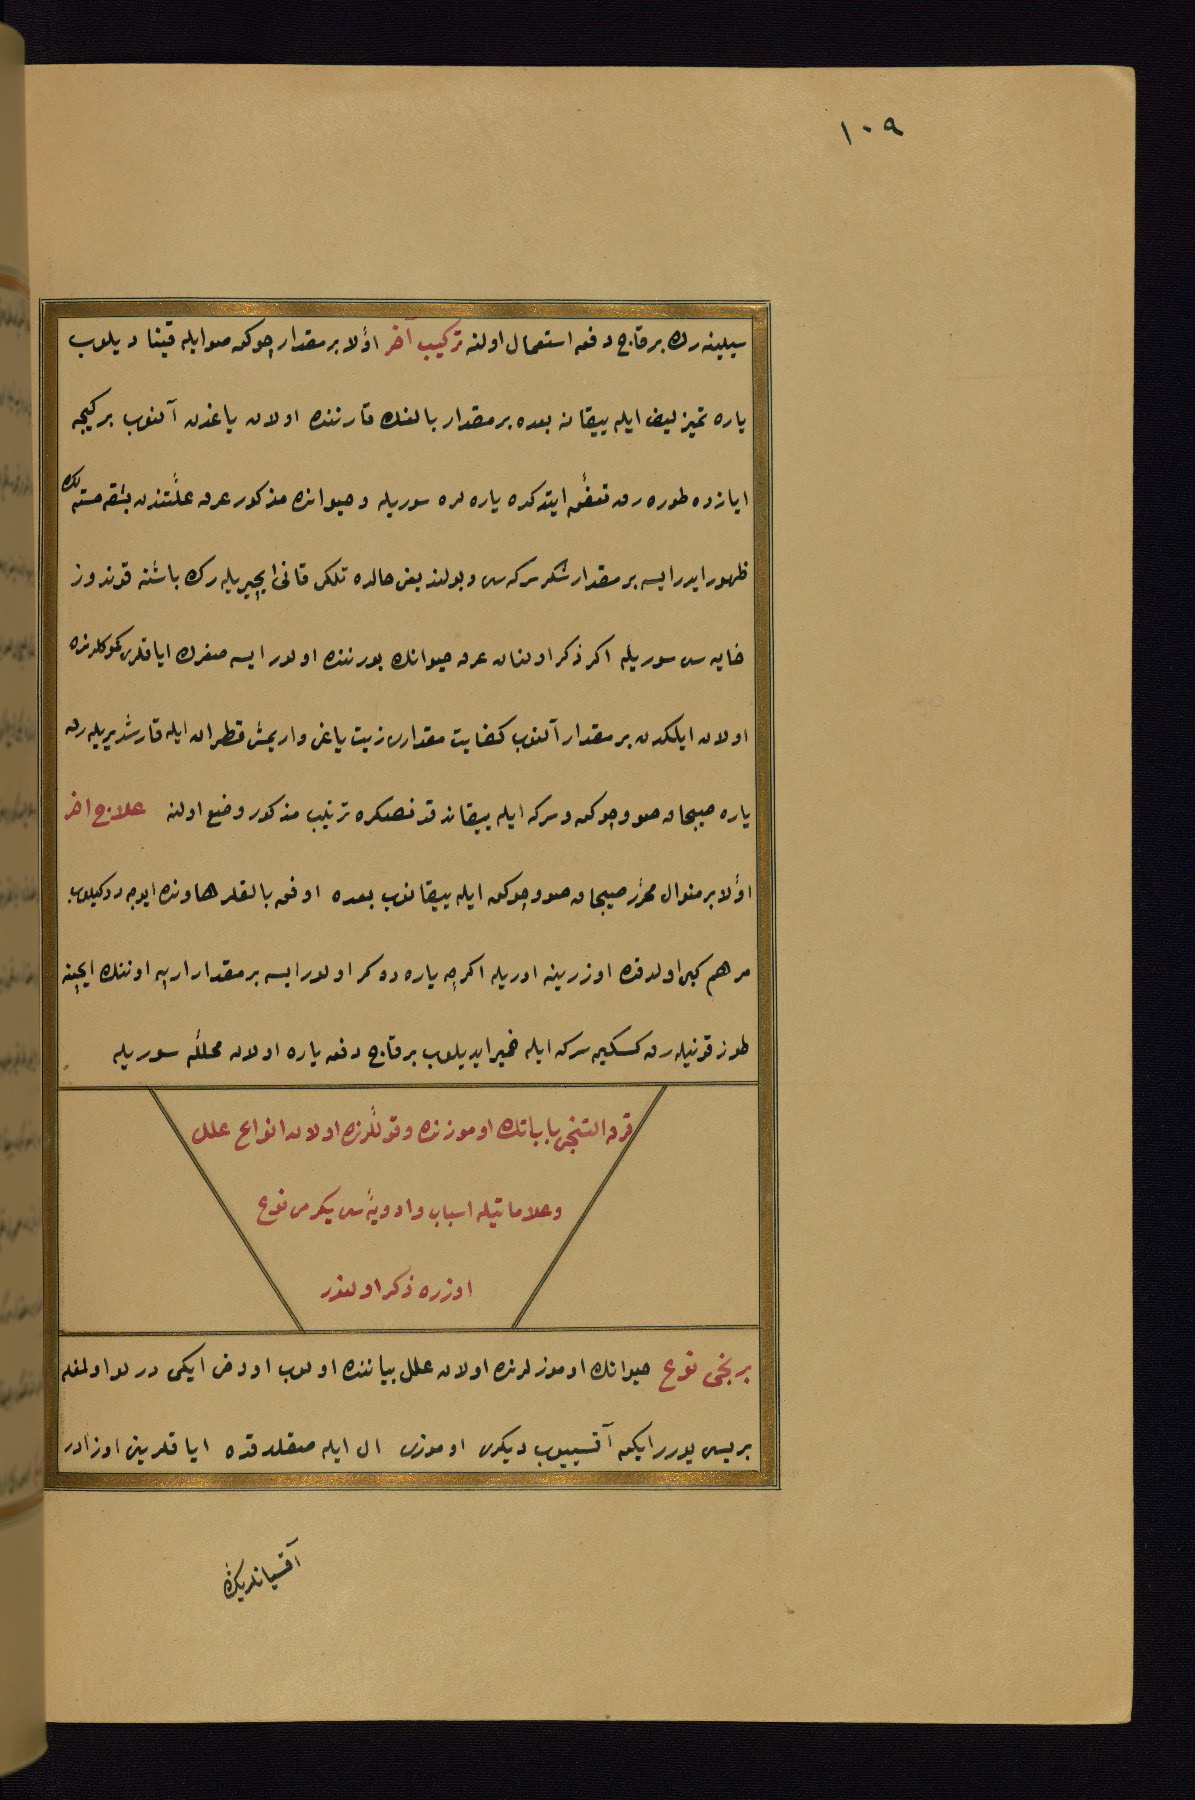 ١٠٩
سیلینه رك برقاج دفعه استعمال اولنه تركیب آخر اوّلا بر مقدار چوكن صوایله قینادیلوب
یاره تمیز لیف ایله ییقانه بعده بر مقدار بالغك قارننده اولان یاغدن آلنوب بر كیجه
ایازده طوره رق تعفّن ایتدكده یاره لره سوریله و حیوانده مذكور عرق علّتندن بشقه خسته لك
ظهور ایدر ایسه بر مقدار شكر سركه سی و بولندیغی حالده تلكی قانی ایچیریله رك باشنه قوندوز
خایه سی سوریله اكر ذكر اولنان عرق حیوانك بورننده اولور ایسه صغرك ایاقلری كوكلرنده
اولان ایلكدن بر مقدار آلنوب كفایت مقداری زیت یاغی و اریمش قطران ایله قارشدیریله رق
یاره صیجاق صو و چوكن و سركه ایله ییقاندقدنصكره ترتیب مذكور وضع اولنه علاج اخر
اوّلا بر منوال محرّر صیجاق صو و چوكن ایله ییقانوب بعده اوفق بالقلر هاونده ایوجه دوكیلوب
مرهم كبی اولدقده اوزرینه اوریله اكرچه یاره دوكر اولور ایسه بر مقدار ارپه اوننك ایچنه
طوز قونیله رق كسكین سركه ایله خمیر ایدیلوب برقاج دفعه یاره اولان محللّه سوریله
قرق التنجی باب اتك اوموزنده و قوللرنده اولان انواع علل
و علاماتیله اسباب و ادویه سی یكرمی نوع
اوزره ذكر اولنور
برنجی نوع حیوانك اوموزلرنده اولان علل بیاننده اولوب اودخی ایكی درلو اولمغله
بریسی یوررایكن آقسیوب دیكری اوموزی ال ایله صقلدقده ایاقلرینی اوزادر
آقسیانلریكڭ